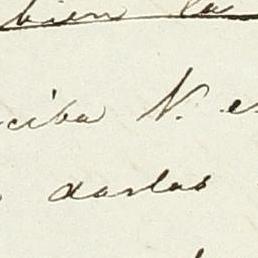 bien la
ciba V. e
darlas